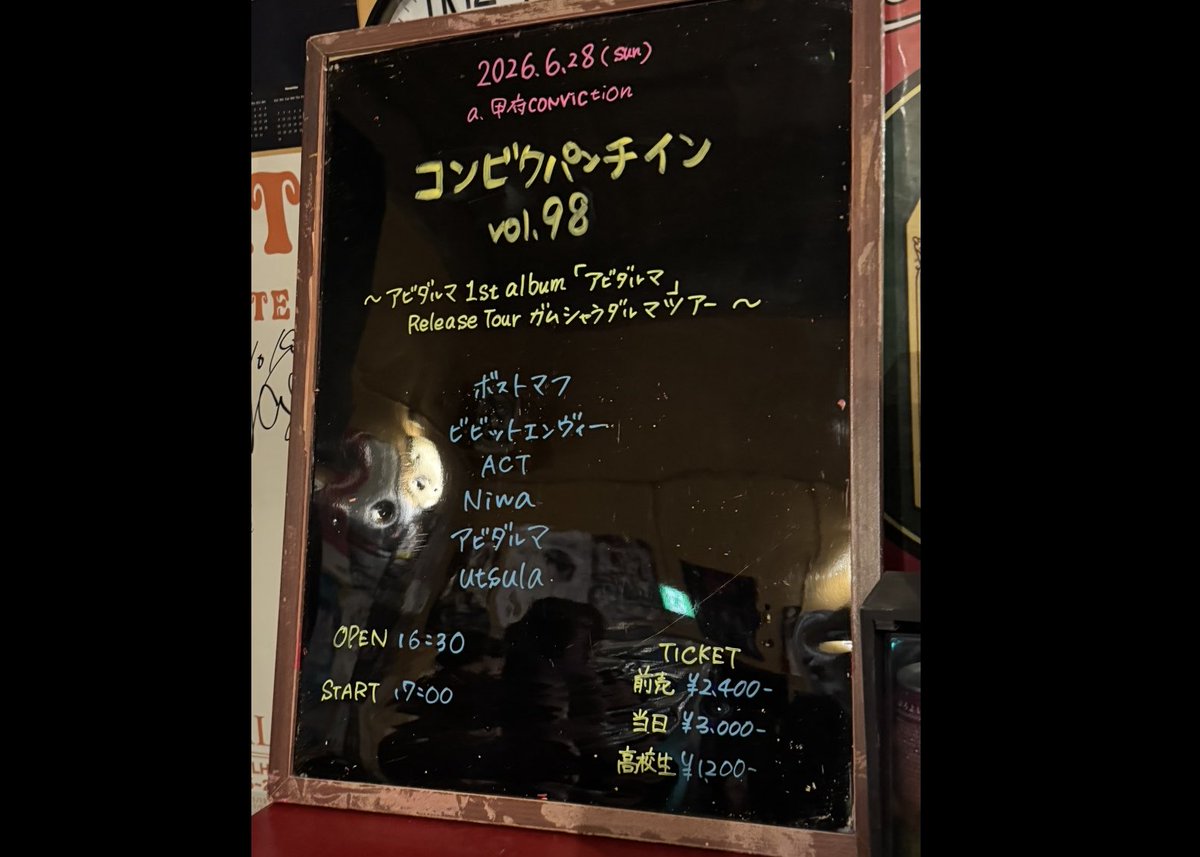 2026.6.28(sun)
a.甲府CONVICTION
コンビクパンチイン
vol.98
～アビダルマ 1st album「アビダルマ」
Release Tour ガムシャラダルマツアー～
ボストマフ
ビビットエンヴィー
ACT
Niwa
アビダルマ
utsula
OPEN 16:30
START 17:00
TICKET
前売 ¥2,400-
当日 ¥3,000-
高校生 ¥1200-